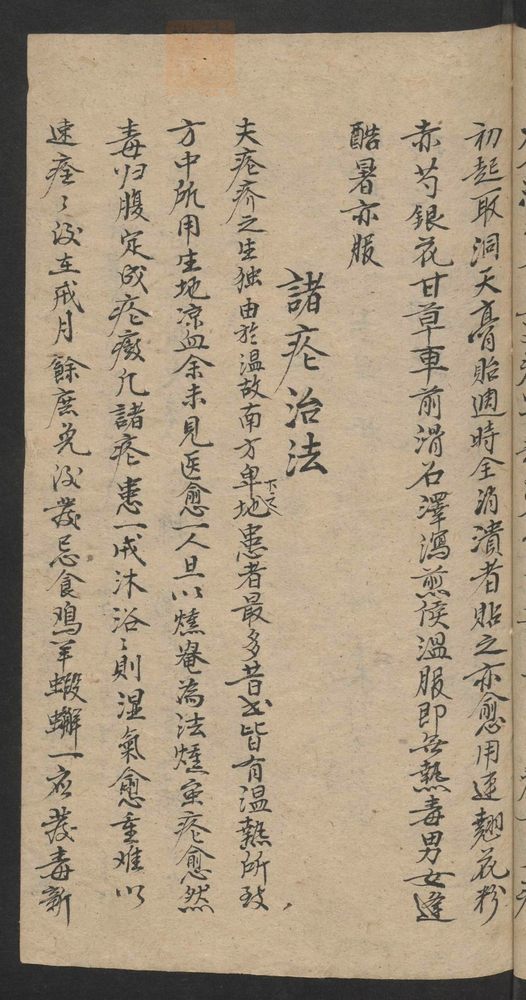 初起取洞天膏貼週時全消潰者貼之亦愈用連翹花粉
赤芍銀花甘草車前滑石澤瀉煎候温服即無熱毒男女逢
酷暑亦服
諸疮治法
夫疮疥之生独由於温故南方卑地患者最多昔皆有温熱所致
下之
方中所用生地凉血余未見医愈一人且以燻為法燻虫疮愈然
毒归腹定成疮癥凡諸疮患一戒沐浴〻則湿氣愈重难以
速痊〻後在戒月餘庶免後發忌食鳮羊蝦蠏一應發毒新